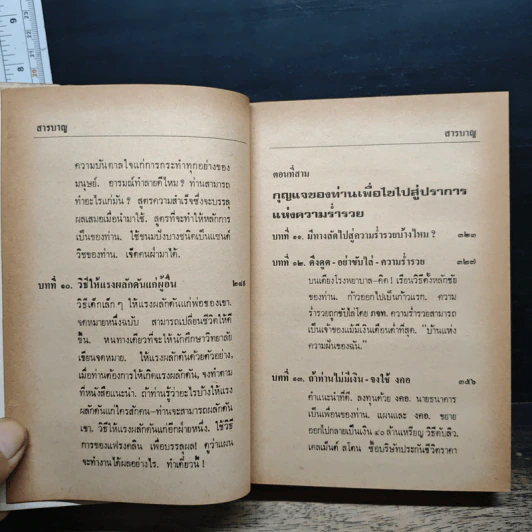 สารบาญ
ความบันดาลใจแก่การกระทำทุกอย่างของ
มนุษย์. อารมณ์ทำลายดีไหม? ท่านสามารถ
ทำอะไรแก่มัน? สูตรความสำเร็จซึ่งจะบรรลุ
ผลเสมอเมื่อนำมาใช้. สูตรที่จะทำให้หลักการ
เป็นของท่าน. ใช้ขนมปังบางชนิดเป็นแซนด์
วิชของท่าน. เช็คคนผ่ามาได้.
บทที่ ๑๐. วิธีให้แรงผลักดันแก่ผู้อื่น
วิธีเด็กเล็กๆ ให้แรงผลักดันแก่พ่อของเขา.
จดหมายหนึ่งฉบับ สามารถเปลี่ยนชีวิตให้ดี
ขึ้น. หนทางเดียวที่จะให้นักศึกษาวิทยาลัย
เขียนจดหมาย. ให้แรงผลักดันด้วยตัวอย่าง.
เมื่อท่านต้องการให้เกิดแรงผลักดัน, จงทำตาม
ที่หนังสือแนะนำ. ถ้าท่านรู้ว่าอะไรบ้างให้แรง
ผลักดันแก่ใครสักคน—ท่านจะสามารถผลักดัน
เขา. วิธีให้แรงผลักดันแก่อีกฝ่ายหนึ่ง. ใช้วิธี
การของแฟรงคลิน เพื่อบรรลุผล! ดูว่าแผน
จะทำงานได้ผลอย่างไร. ทำเดี๋ยวนี้!
สารบาญ
ตอนที่สาม
กุญแจของท่านเพื่อไขไปสู่ปราการ
แห่งความร่ำรวย
บทที่ ๑๑. มีทางลัดไปสู่ความร่ำรวยบ้างไหม? ๓๒๓
บทที่ ๑๒. ดึงดูด - อย่าขับไล่ - ความร่ำรวย ๓๒๗
บนเตียงโรงพยาบาล-คิด! เรียนวิธีตั้งหลักชัย
ของท่าน. ก้าวออกไปเป็นก้าวแรก. ความ
ร่ำรวยถูกขับไล่โดย ภจท. ความร่ำรวยสามารถ
เป็นเจ้าของแม้มีเงินเดือนต่ำที่สุด. "บ้านแห่ง
ความฝันของฉัน."
บทที่ ๑๓. ถ้าท่านไม่มีเงิน - จงใช้ งคอ. ๓๕๖
คำแนะนำที่ดี. ลงทุนด้วย งคอ. นายธนาคาร
เป็นเพื่อนของท่าน. แผนและ งคอ. ขยาย
ออกไปกลายเป็นเงิน ๔๐ ล้านเหรียญ วิธีดับลิว.
เคลเม็นต์ สโตน ซื้อบริษัทประกันชีวิตราคา